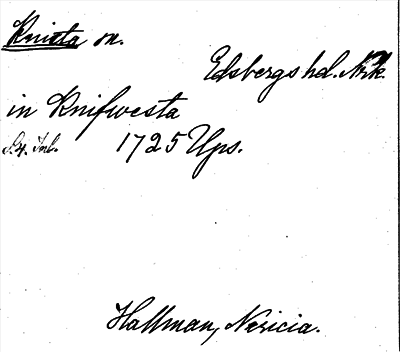 Knista sn.
Edsbergs hd. Nrk.
in Knifwesta
1725 Ups.
Hallman, Nericia.